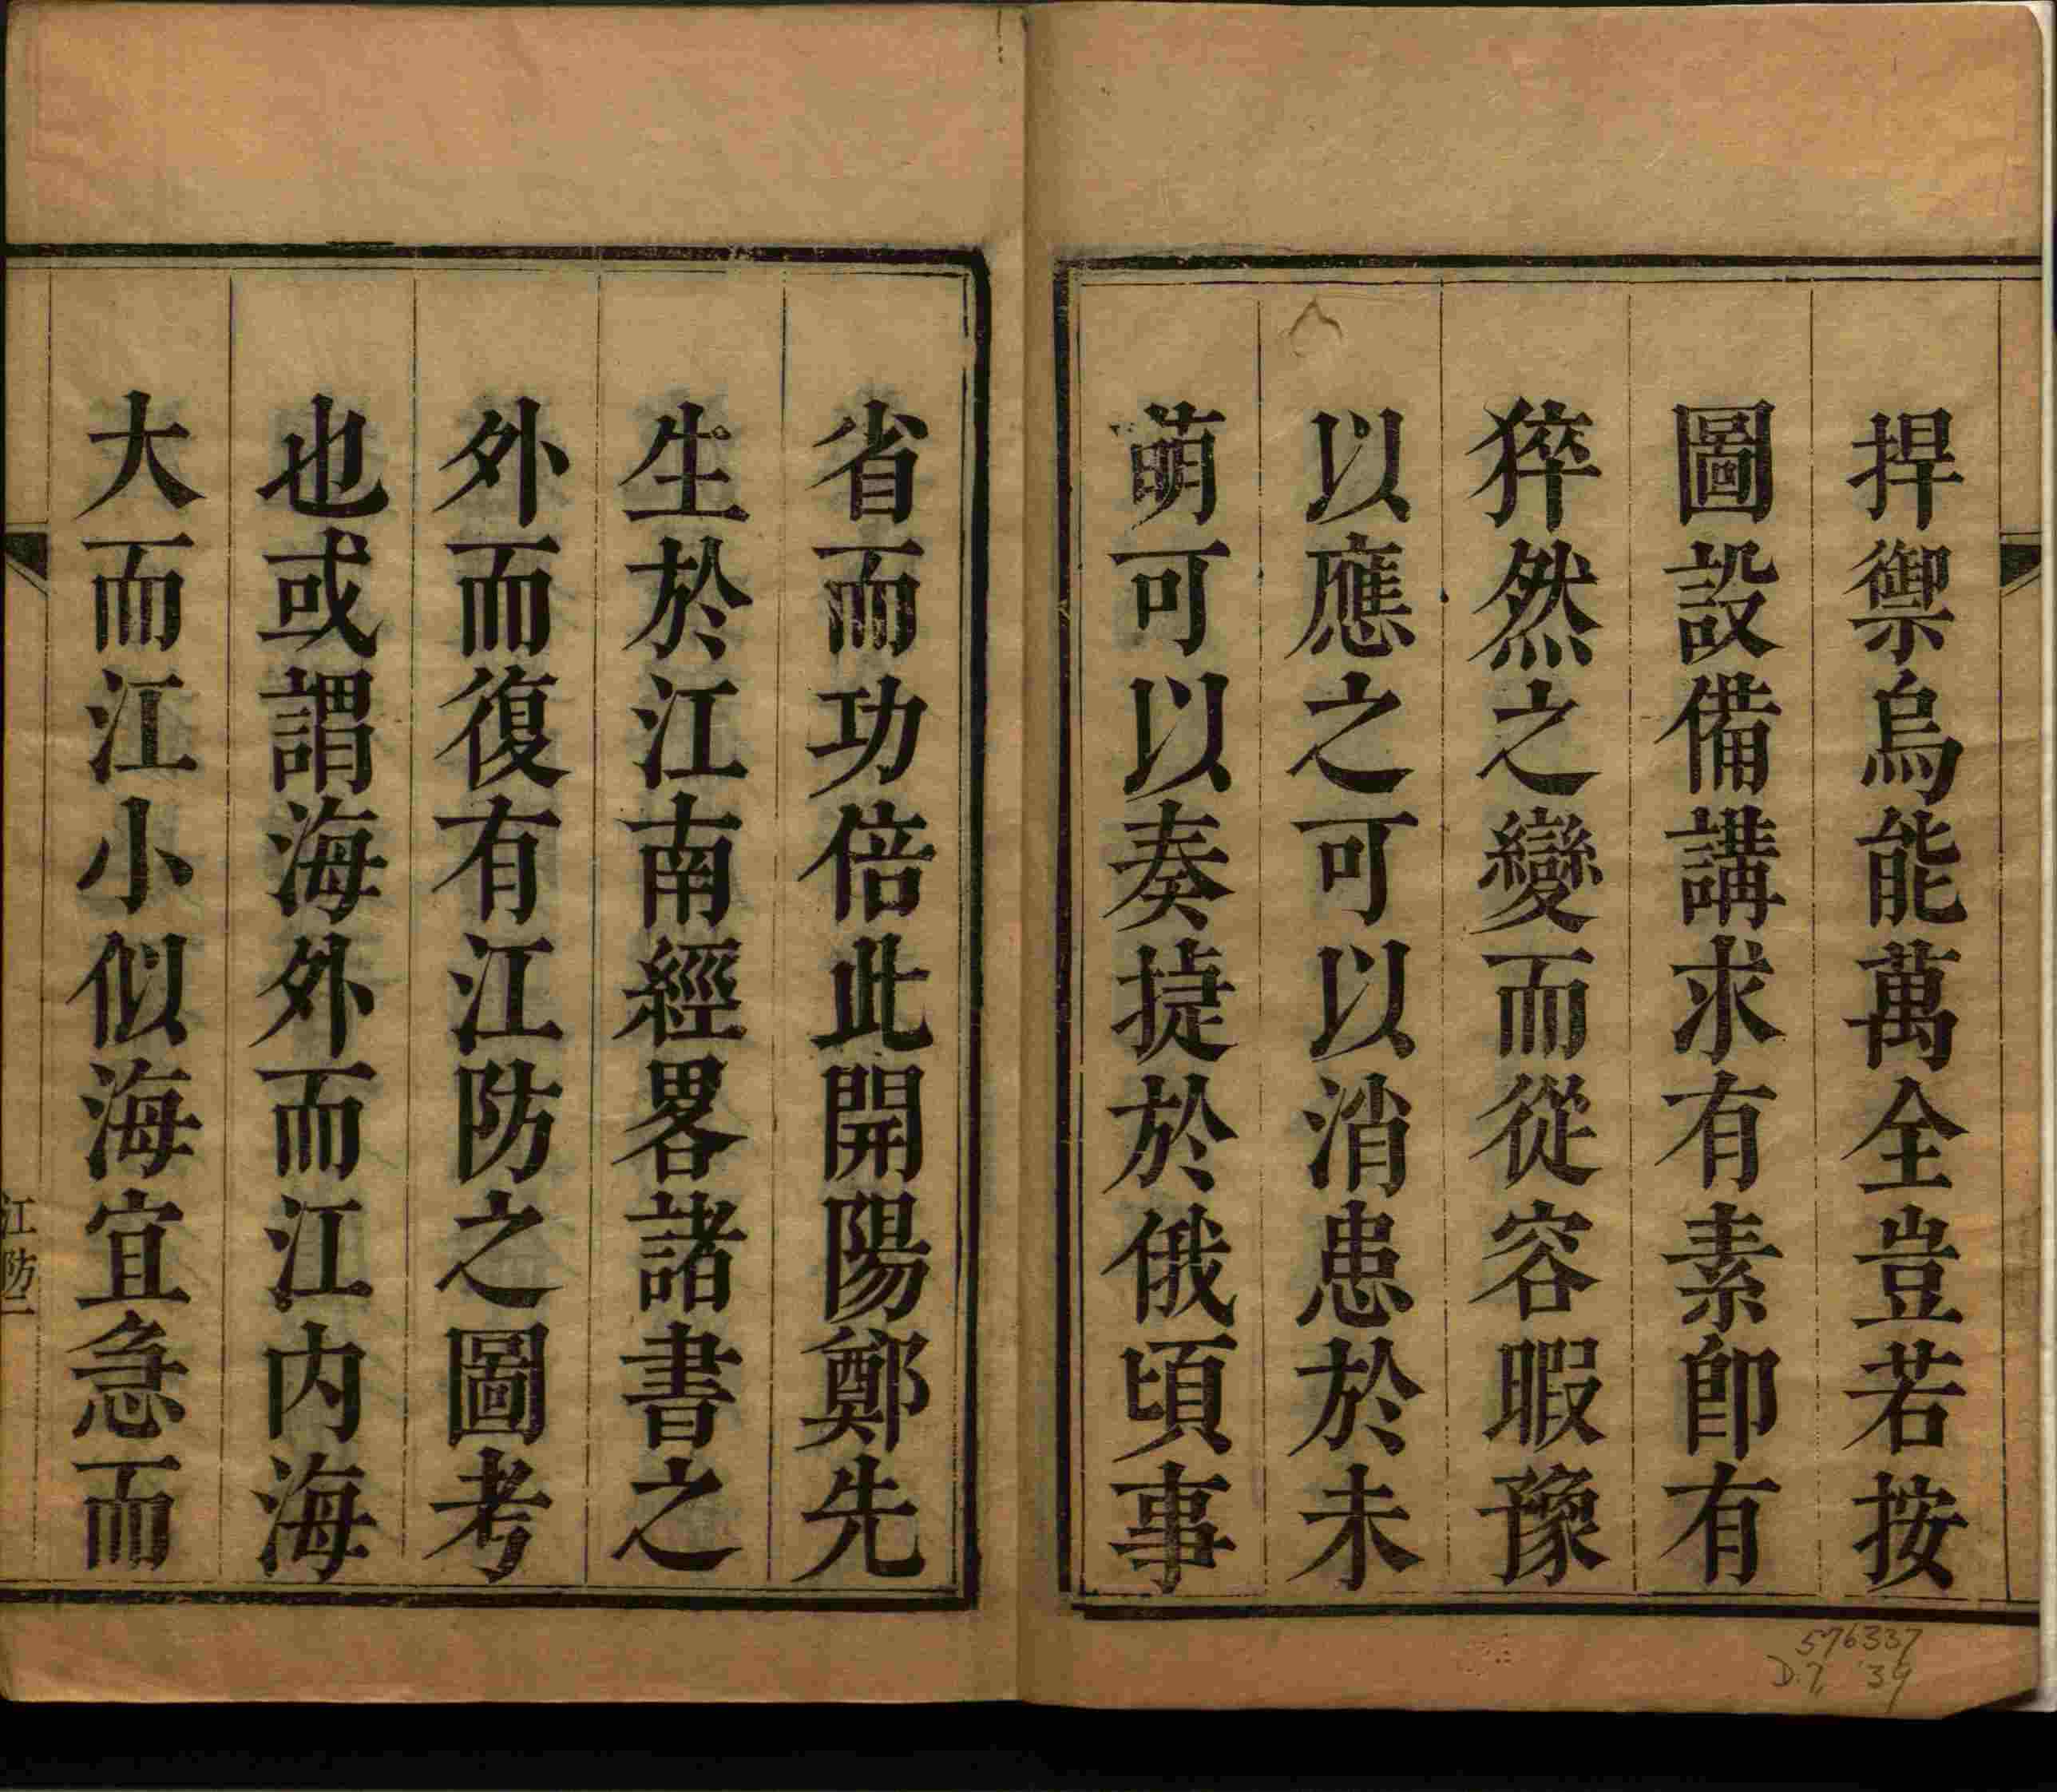 捍禦烏能萬全豈若按
圖設備講求有素卽有
猝然之變而從容暇豫
以應之可以消患於未
萌可以奏捷於俄頃事
省而功倍此開陽鄭先
生於江南經畧諸書之
外而復有江防之圖考
也或謂海外而江内海
大而江小似海宜急而
江防二
576337
D.7, '39